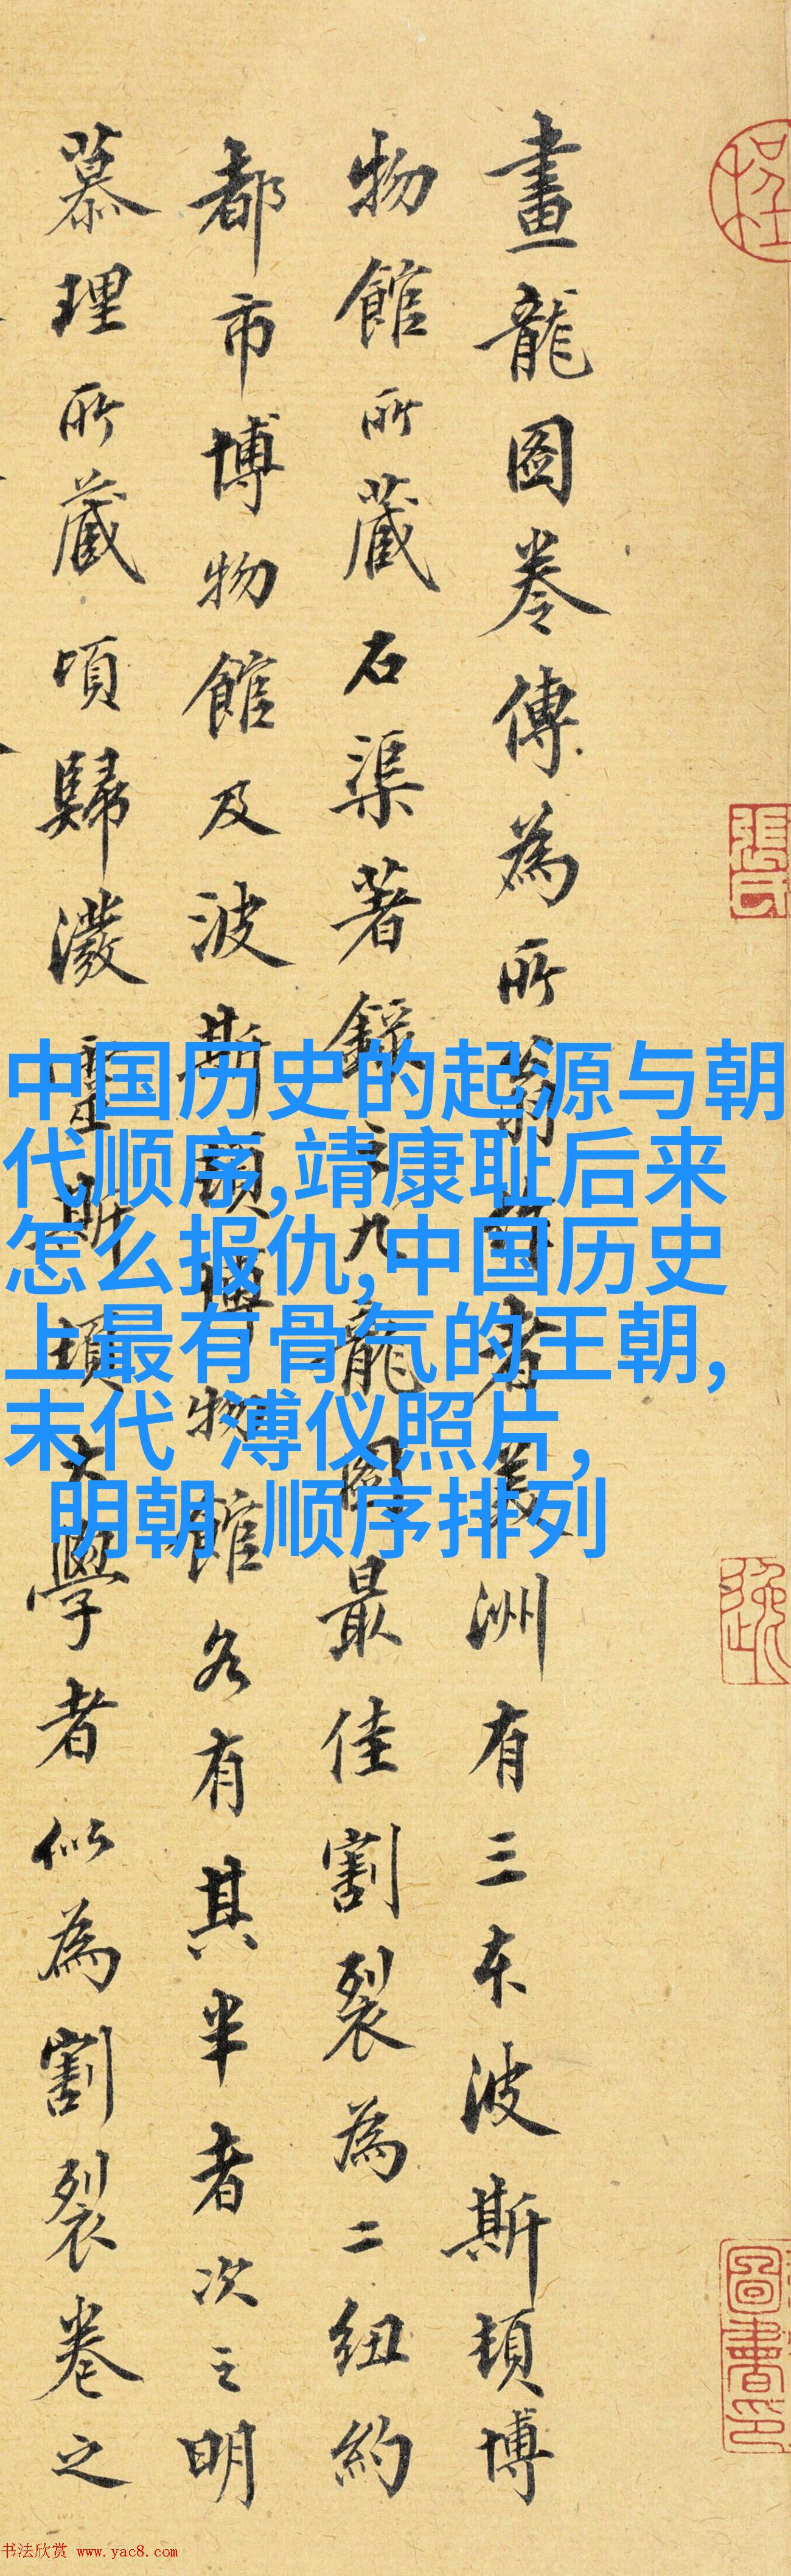 畫龍圖卷傳為所翁作者美洲有三本波斯頓博
物館所藏石渠著錄之九龍圖最佳割裂為二紐約
都市博物館及波斯頓博物館各有其半者次之明
慕理所藏頃歸潑靈斯頓大學者似為割裂卷之
中国历史的起源与朝
代顺序,靖康耻后来
怎么报仇,中国历史
上最有骨气的王朝,
末代 溥仪照片,
明朝 顺序排列
书法欣赏 www.yac8.com